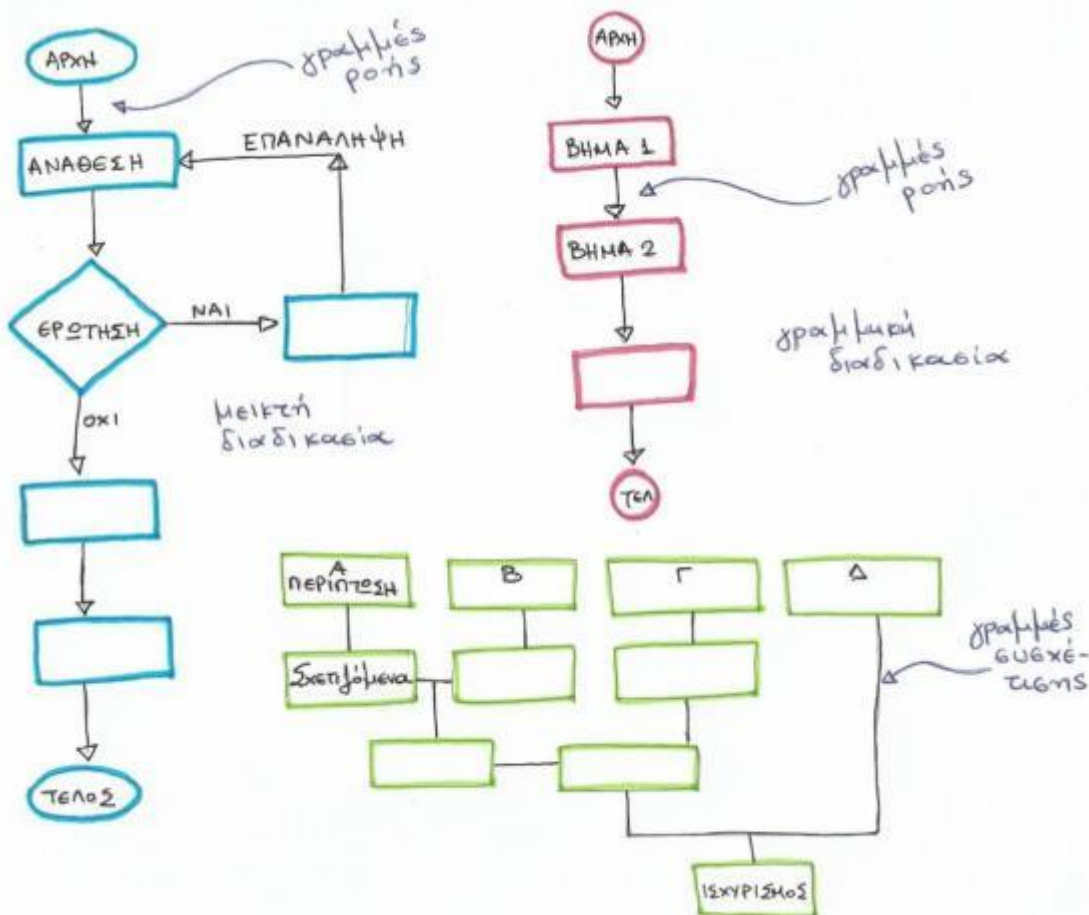 ΑΡΧΗ
γραμμές
ροής
ΑΝΑΘΕΣΗ
ΕΠΑΝΑΛΗΨΗ
ΕΡΩΤΗΣΗ
ΝΑΙ
ΟΧΙ
μεικτή
διαδικασία
ΤΕΛΟΣ
ΑΡΧΗ
ΒΗΜΑ 1
γραμμές
ροής
ΒΗΜΑ 2
γραμμική
διαδικασία
ΤΕΛ
Α
ΠΕΡΙΠΤΩΣΗ
Β
Γ
Δ
Σχετιζόμενα
γραμμές
συσχέ-
τισης
ΙΣΧΥΡΙΣΜΟΣ